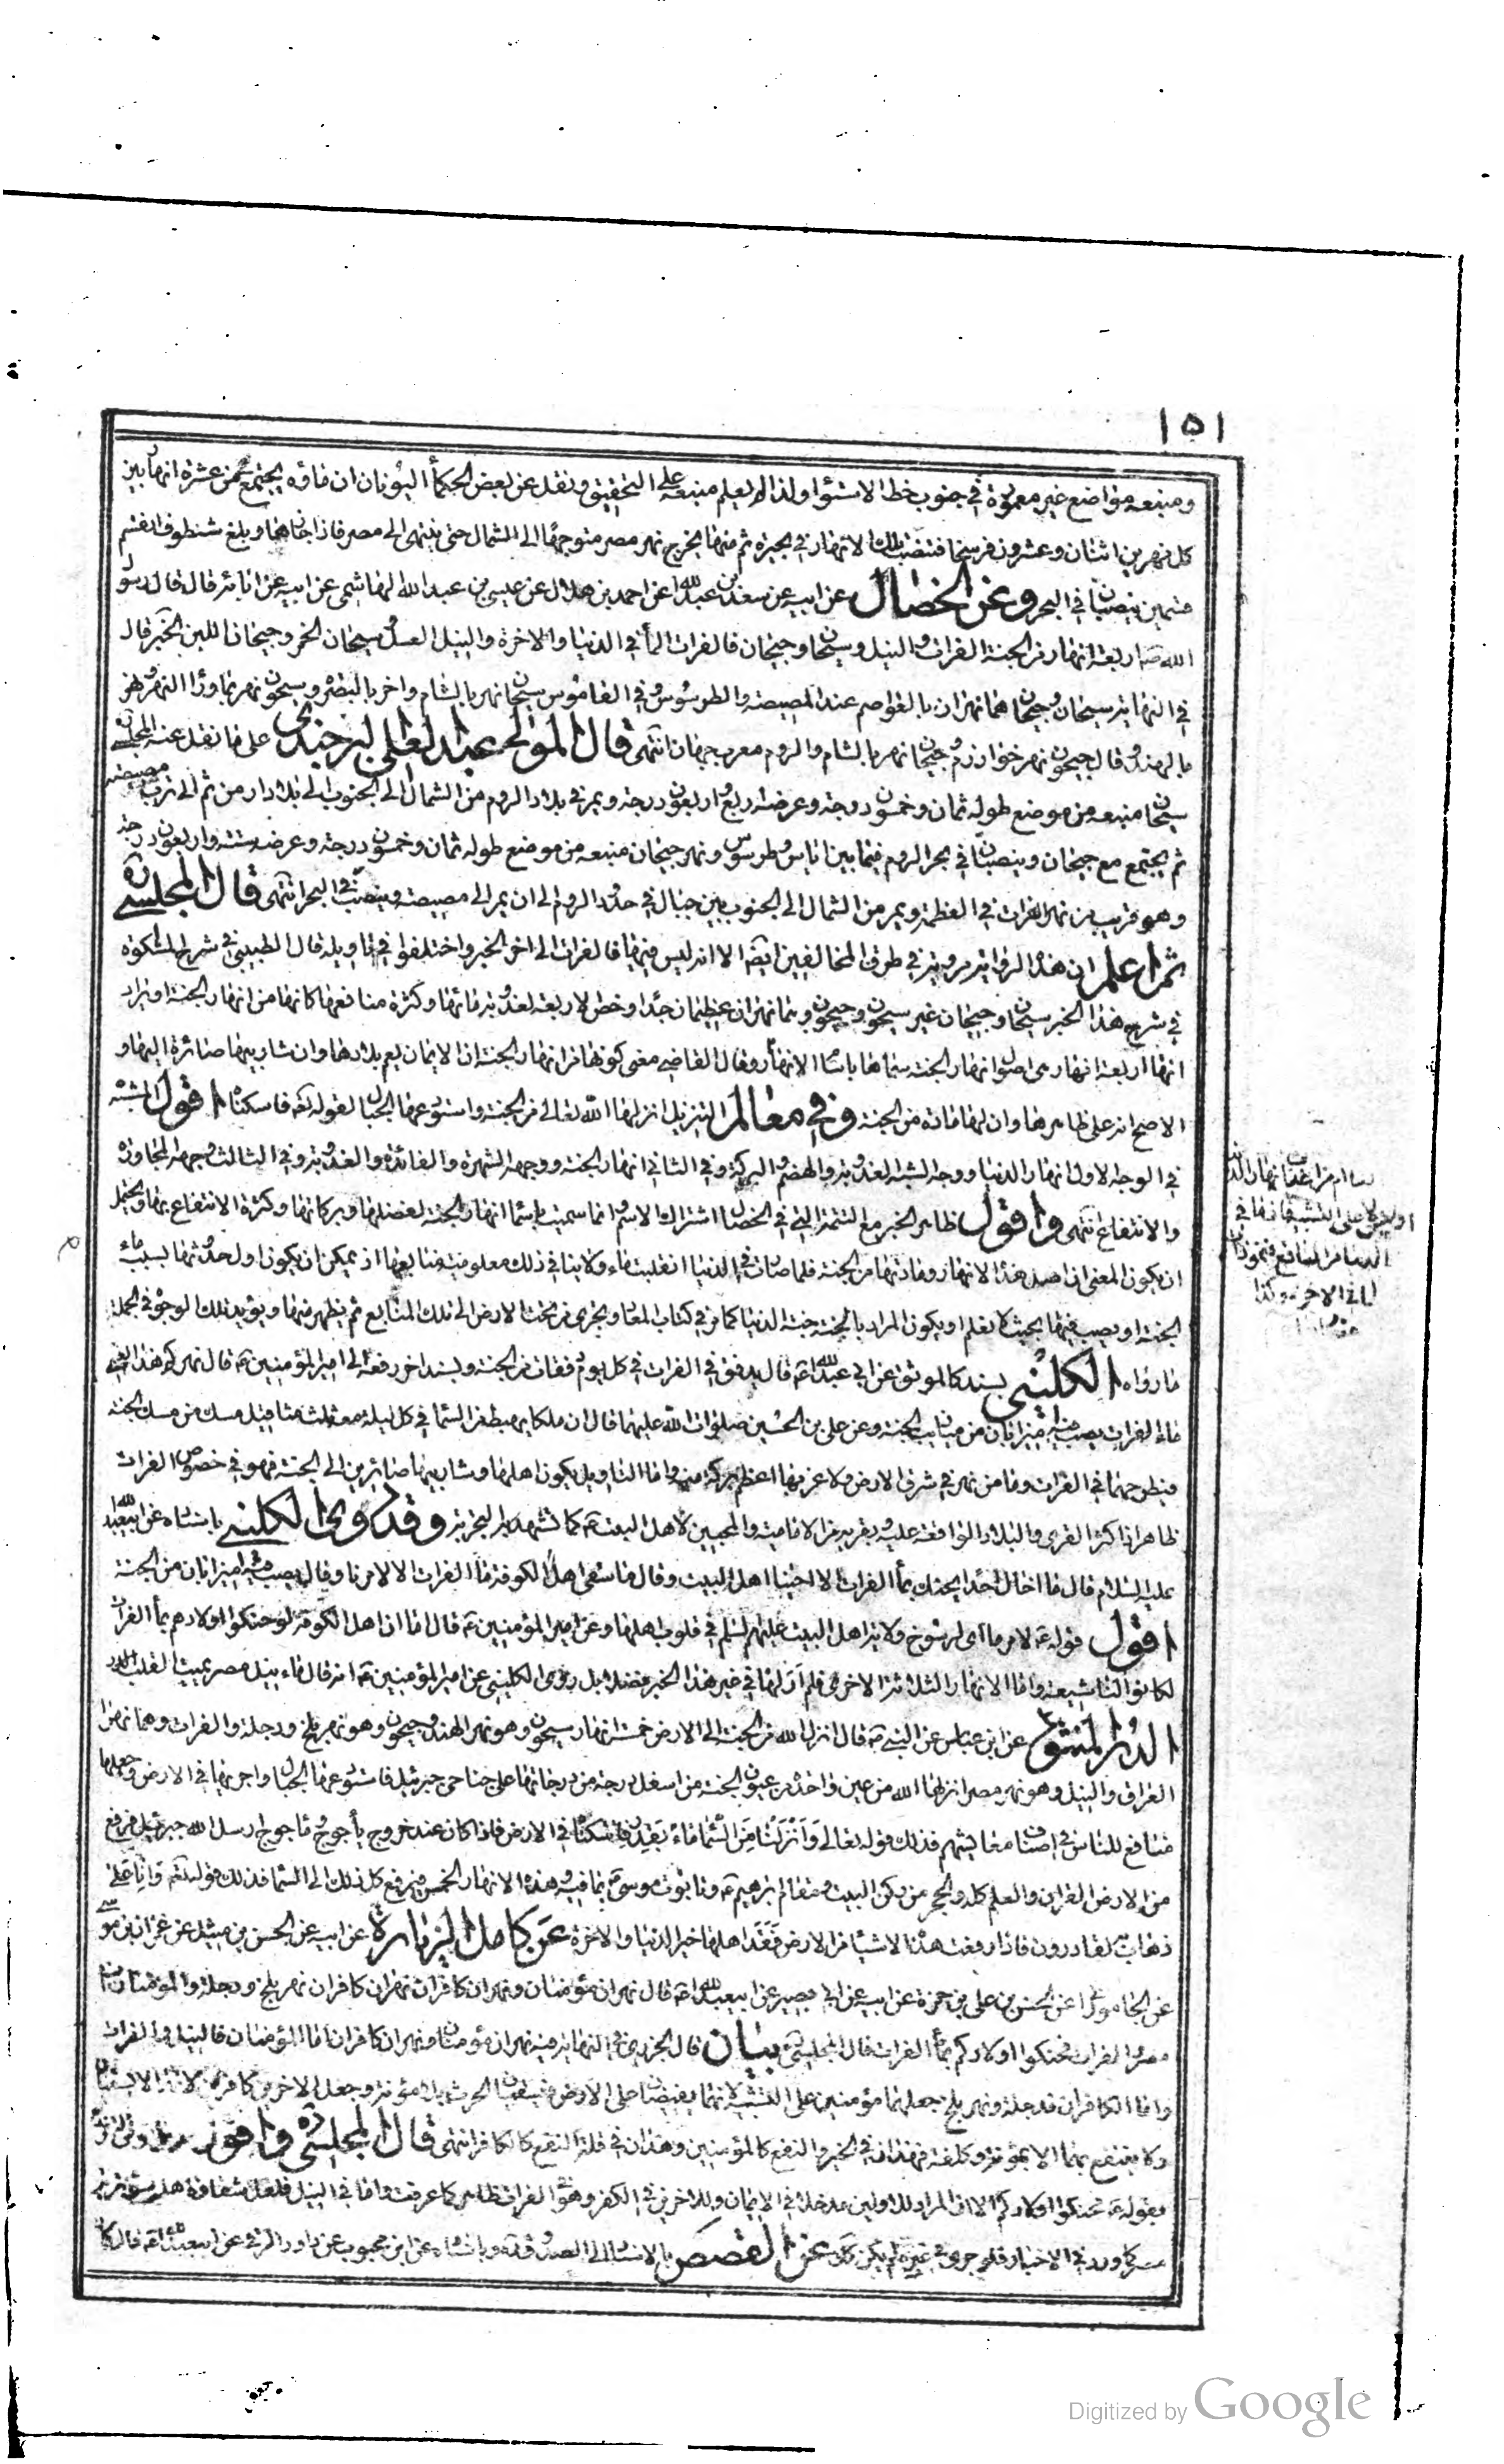 ١٥١
ومنبعه مواضع غير معمورة في جنوب خط الاستواء ولذا لم يعلم منبعه على التحقيق ونقل عن بعض الحكماء اليونان ان ماؤه يجتمع من عشرة انهار بين
كل نهرين اثنان وعشرون فرسخا فتنصب تلك الانهار في بحيرة ثم منها يخرج نهر مصر متوجها الى الشمال حتى ينتهي الى مصر فاذا جازها وبلغ شنطوف انقسم
قسمين ينصبان في البحر وعن الخصال عن ابيه عن سعد بن عبد الله عن احمد بن هلال عن عيسى بن عبد الله الهاشمي عن ابيه عن آبائه قال قال رسول
الله ص اربعة انهار من الجنة الفرات والنيل وسيحان وجيحان فالفرات الماء في الدنيا والاخرة والنيل العسل وسيحان الخمر وجيحان اللبن الخبر قال
في النهاية سيحان وجيحان هما نهران بالعواصم عند المصيصة والطرسوس وفي القاموس سيحان نهر بالشام واخر بالبصرة وسيحون نهر بما وراء النهر ونهر
بالهند وقال جيحون نهر خوارزم وجيحان نهر بالشام والروم معرب جهان انتهى قال المولى عبد العلي البرجندي على ما نقل عنه المجلسي
سيحان منبعه من موضع طوله ثمان وخمسون درجة وعرضه اربع واربعون درجة ويمر في بلاد الروم من الشمال الى الجنوب الى بلاد ارمن ثم الى قرب مصيصة
ثم يجتمع مع جيحان وينصبان في بحر الروم فيما بين اياس وطرسوس ونهر جيحان منبعه من موضع طوله ثمان وخمسون درجة وعرضه ستة واربعون درجة
وهو قريب من نهر الفرات في العظمة ويمر من الشمال الى الجنوب بين جبال في حدود الروم الى ان يمر الى مصيصة وينصب في البحر انتهى قال المجلسي ره
ثم اعلم ان هذه الرواية مروية في طرق المخالفين ايضا الا انه ليس فيها فالفرات الى اخر الخبر واختلفوا في تاويله قال الطيبي في شرح المشكوة
في شرح هذا الخبر سيحان وجيحان غير سيحون وجيحون وهما نهران عظيمان جدا وخص الاربعة لعذوبة مائها وكثرة منافعها كانها من انهار الجنة او يراد
انها اربعة انهار هي اصول انهار الجنة سماها باسماء الانهار وقال القاضي معنى كونها من انهار الجنة ان الايمان يعم بلادها وان شاربيها صائرة اليها و
الاصح انه على ظاهرها وان لها مادة من الجنة وفي معالم التنزيل انزلها الله تعالى من الجنة واستودعها الجبال لقوله تعالى فاسكناه اقول المشبه
في الوجه الاول انهار الدنيا ووجه الشبه العذوبة والهضم والبركة وفي الثاني انهار الجنة ووجهه الشهرة والفائدة والعذوبة وفي الثالث وجهه المجاورة
والانتفاع انتهى واقول ظاهر الخبر مع التتمة التي في الخصال اشتراك الاسم وانما سميت باسماء انهار الجنة لفضلها وبركاتها وكثرة الانتفاع بها ويحتمل
ان يكون المعنى ان اصل هذه الانهار ومادتها من الجنة فلما صارت في الدنيا انقلبت ماء ولا ينافي ذلك معلومية منابعها اذ يمكن ان يكون اول حدوثها بسبب ماء
الجنة او يصب فيها بحيث لا نعلم او يكون المراد بالجنة جنة الدنيا كما مر في كتاب المعاد ويجري من تحت الارض الى تلك المنابع ثم يظهر منها ويؤيد تلك الوجوه في الجملة
ما رواه الكليني بسند كالموثق عن ابي عبد الله ع قال يدفق في الفرات في كل يوم دفقات من الجنة وبسند اخر رفعه الى امير المؤمنين ع قال نهركم هذا يعني
ماء الفرات يصب فيه ميزابان من ميازيب الجنة وعن علي بن الحسين صلوات الله عليهما قال ان ملكا يهبط من السماء في كل ليلة معه ثلث مثاقيل مسك من مسك الجنة
فيطرحها في الفرات وما من نهر في شرق الارض ولا غربها اعظم بركة منه واما التاويل بكون اهلها وشاربيها صائرين الى الجنة فهو في خصوص الفرات
ظاهر اذ اكثر القرى والبلاد الواقعة عليه وبقربه من الامامية والمحبين لاهل البيت ع كما تشهد به التجربة وقد روى الكليني باسناده عن ابي عبد الله
عليه السلام قال ما اخال احدا يحنك بماء الفرات الا احبنا اهل البيت وقال ما سقى اهل الكوفة ماء الفرات الا لامر ما وقال يصب فيه ميزابان من الجنة
اقول قوله ع لامر ما اى لرسوخ ولاية اهل البيت عليهم السلم في قلوب اهلها وعن امير المؤمنين ع قال اما ان اهل الكوفة لو حنكوا اولادهم بماء الفرات
لكانوا لنا شيعة واما الانهار الثلاثة الاخرى فلم ار لها في غير هذا الخبر فضلا بل روى الكليني عن امير المؤمنين ع انه قال ماء نيل مصر يميت القلب
الدر المنثور عن ابن عباس عن النبي ص قال انزل الله من الجنة الى الارض خمسة انهار سيحون وهو نهر الهند وجيحون وهو نهر بلخ ودجلة والفرات وهما نهرا
العراق والنيل وهو نهر مصر انزلها الله من عين واحدة من عيون الجنة من اسفل درجة من درجاتها على جناحي جبرئيل فاستودعها الجبال واجريها في الارض وجعلها
منافع للناس في اصناف معايشهم فذلك قوله تعالى وانزلنا من السماء ماء بقدر فاسكناه في الارض فاذا كان عند خروج يأجوج وماجوج ارسل الله جبرئيل فرفع
من الارض القران والعلم كله والحجر من ركن البيت ومقام ابرهيم ع وتابوت موسى بما فيه وهذه الانهار الخمس فيرفع كل ذلك الى السماء فذلك قوله تعالى وانا على
ذهاب به لقادرون فاذا رفعت هذه الاشياء من الارض فقد اهلها خير الدنيا والاخرة عن كامل الزيارة عن ابيه عن الحسن بن متيل عن عمران بن موسى
عن الجاموراني عن الحسن بن علي بن حمزة عن ابيه عن ابي بصير عن ابي عبد الله ع قال نهران مؤمنان ونهران كافران نهران كافران نهر بلخ ودجلة والمؤمنان نيل
مصر والفرات فحنكوا اولادكم بماء الفرات قال المجلسي بيان قال الجزري في النهاية فيه نهران مؤمنان ونهران كافران اما المؤمنان فالنيل والفرات
واما الكافران فدجلة ونهر بلخ جعلهما مؤمنين على التشبيه لانهما يفيضان على الارض فيسقيان الحرث بلا مؤنة وجعل الاخرين كافرين لانهما لا يسقيان
ولا ينتفع بهما الا بمؤنة وكلفة فهذان في الخير والنفع كالمؤمنين وهذان في قلة النفع كالكافرين انتهى قال المجلسي ره واقول
بقوله ع فحنكوا اولادكم الا ان المراد للاولين مدخلا في الايمان وللاخرين في الكفر وهو في الفرات ظاهر كما عرفت واما في النيل فلعل شقاوة اهل
مصر كما ورد في الاخبار فلو جرى في غيره لم يكن كذلك عن القصص بالاسناد الى الصدوق ره وباسناده عن ابن محبوب عن داود الرقي عن ابي عبد الله ع قال كان